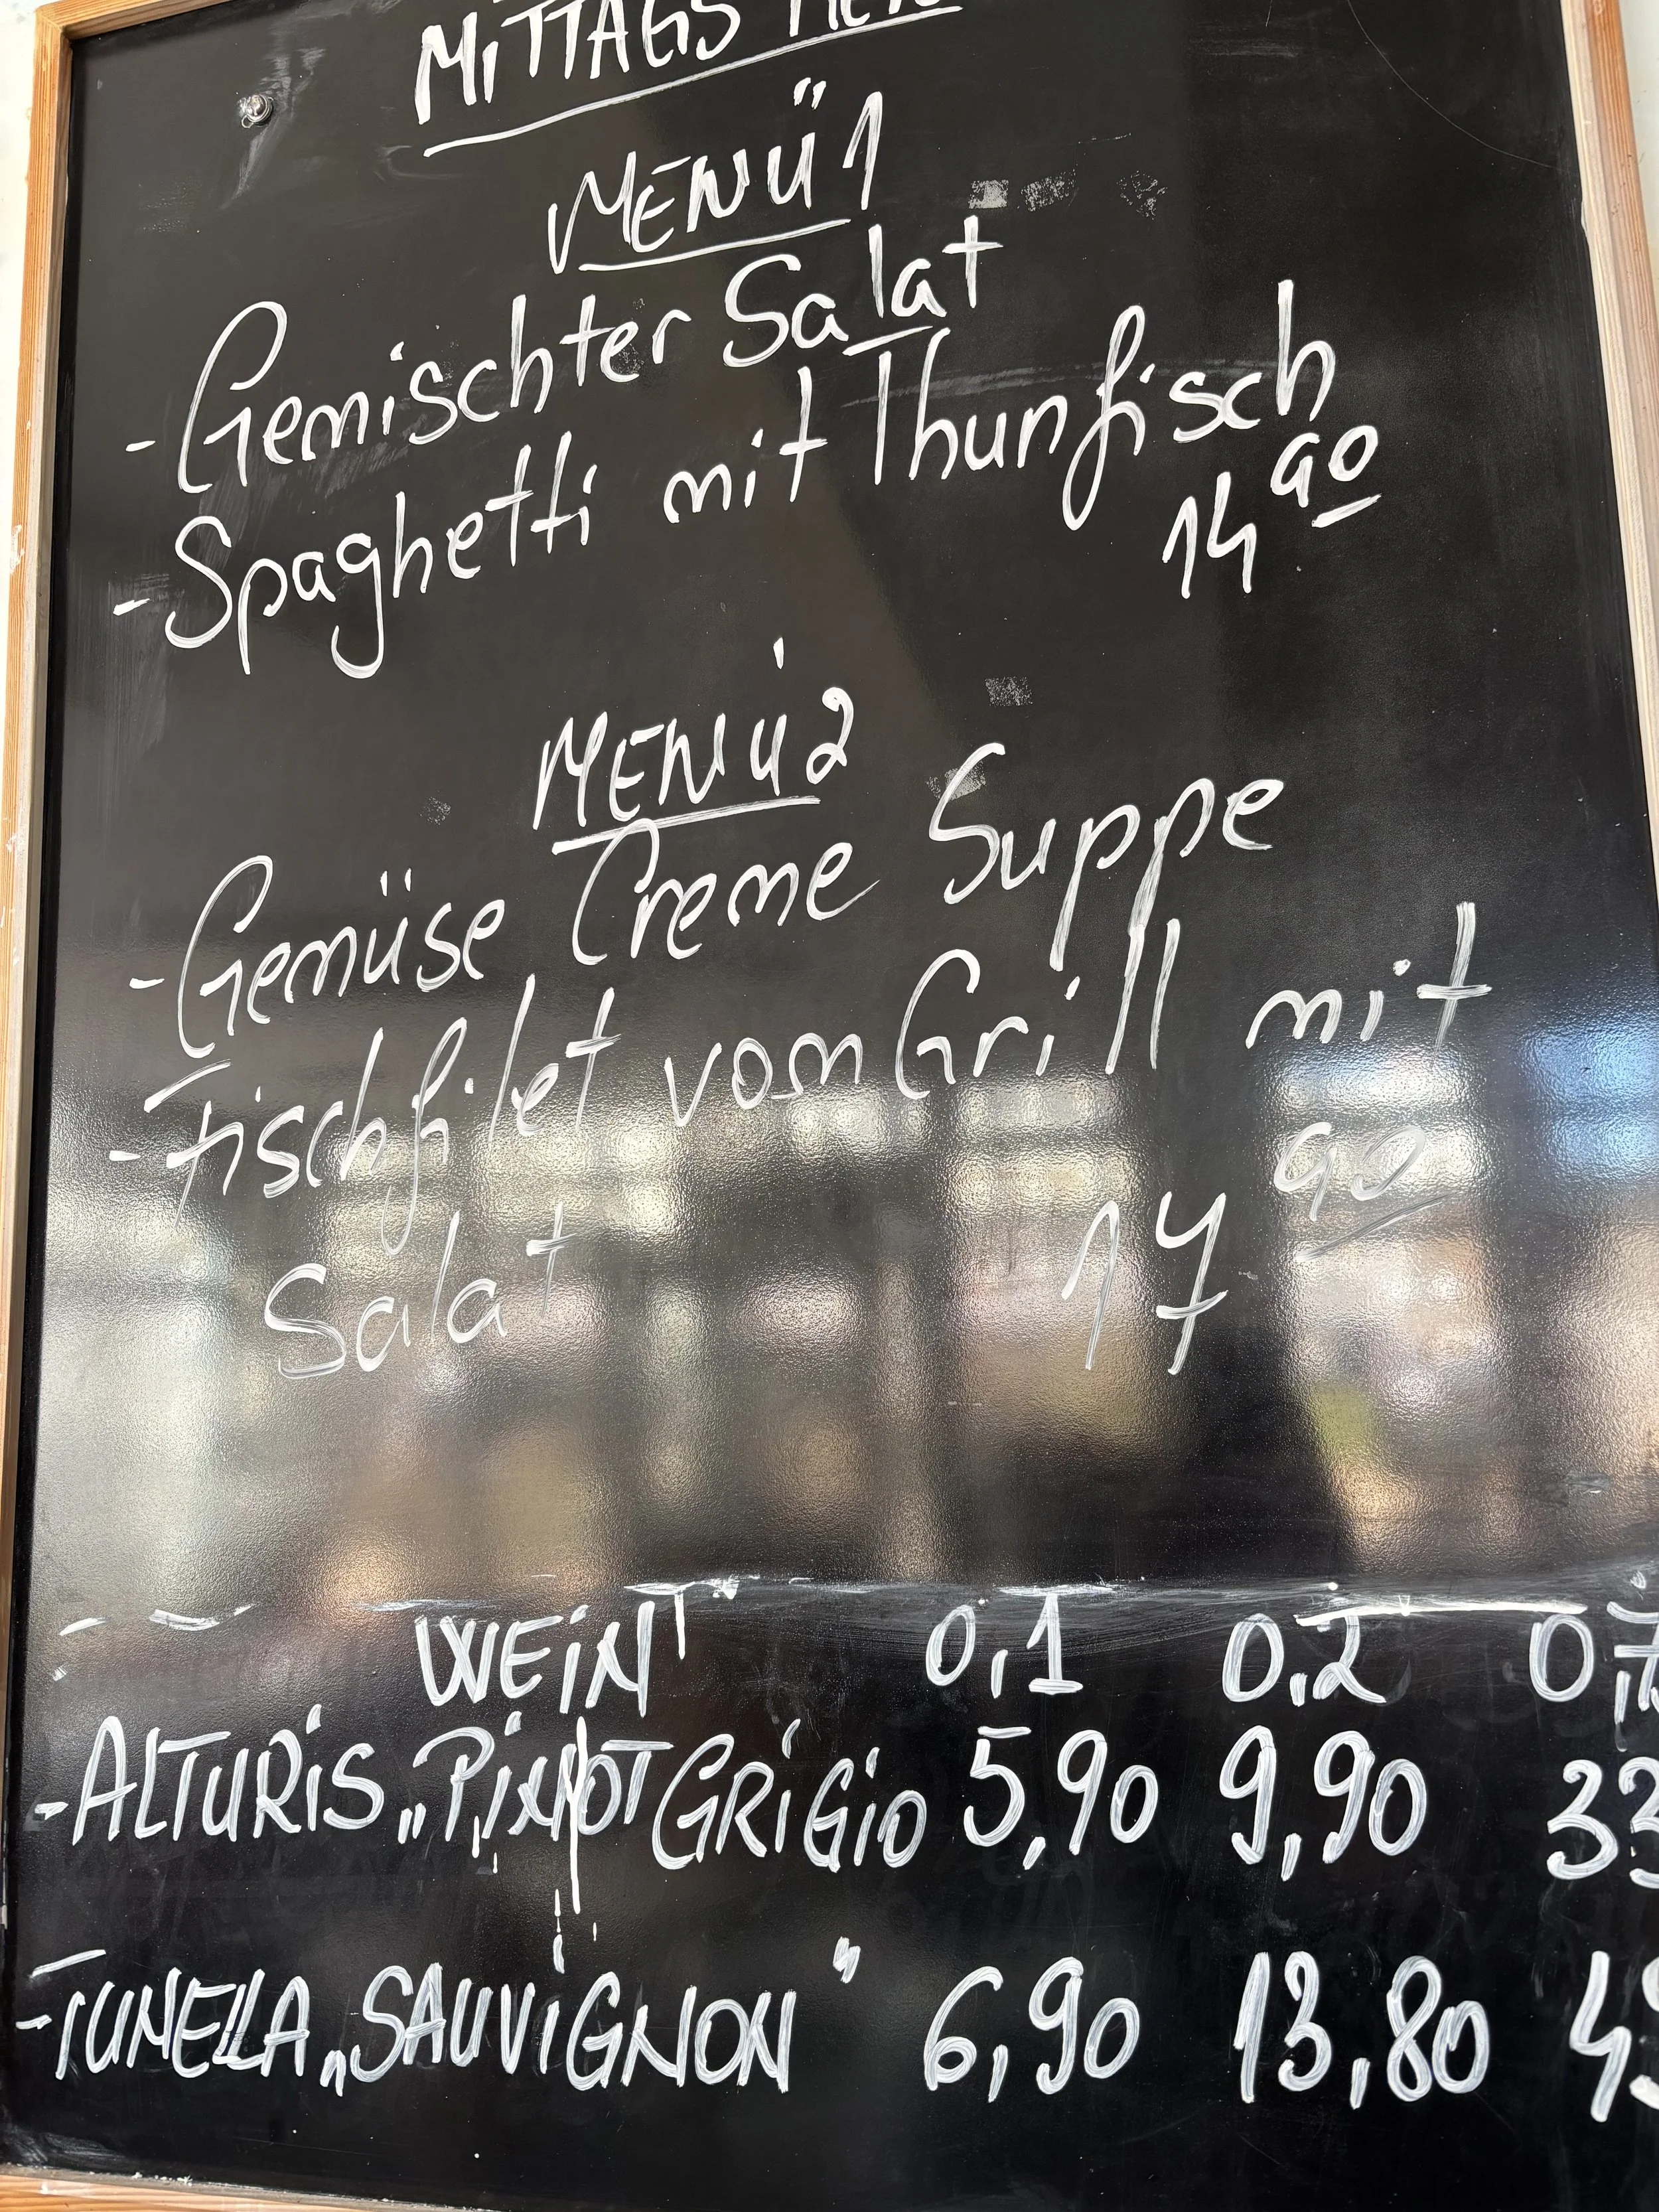 MITTAGS
MENÜ 1
- Gemischter Salat
- Spaghetti mit Thunfisch
14 90
MENÜ 2
- Gemüse Creme Suppe
- Fischfilet vom Grill mit
Salat 17 90
WEIN 0,1 0,2 0,7
- ALTURIS „PINOT GRIGIO 5,90 9,90 33
- TUNELLA „SAUVIGNON" 6,90 13,80